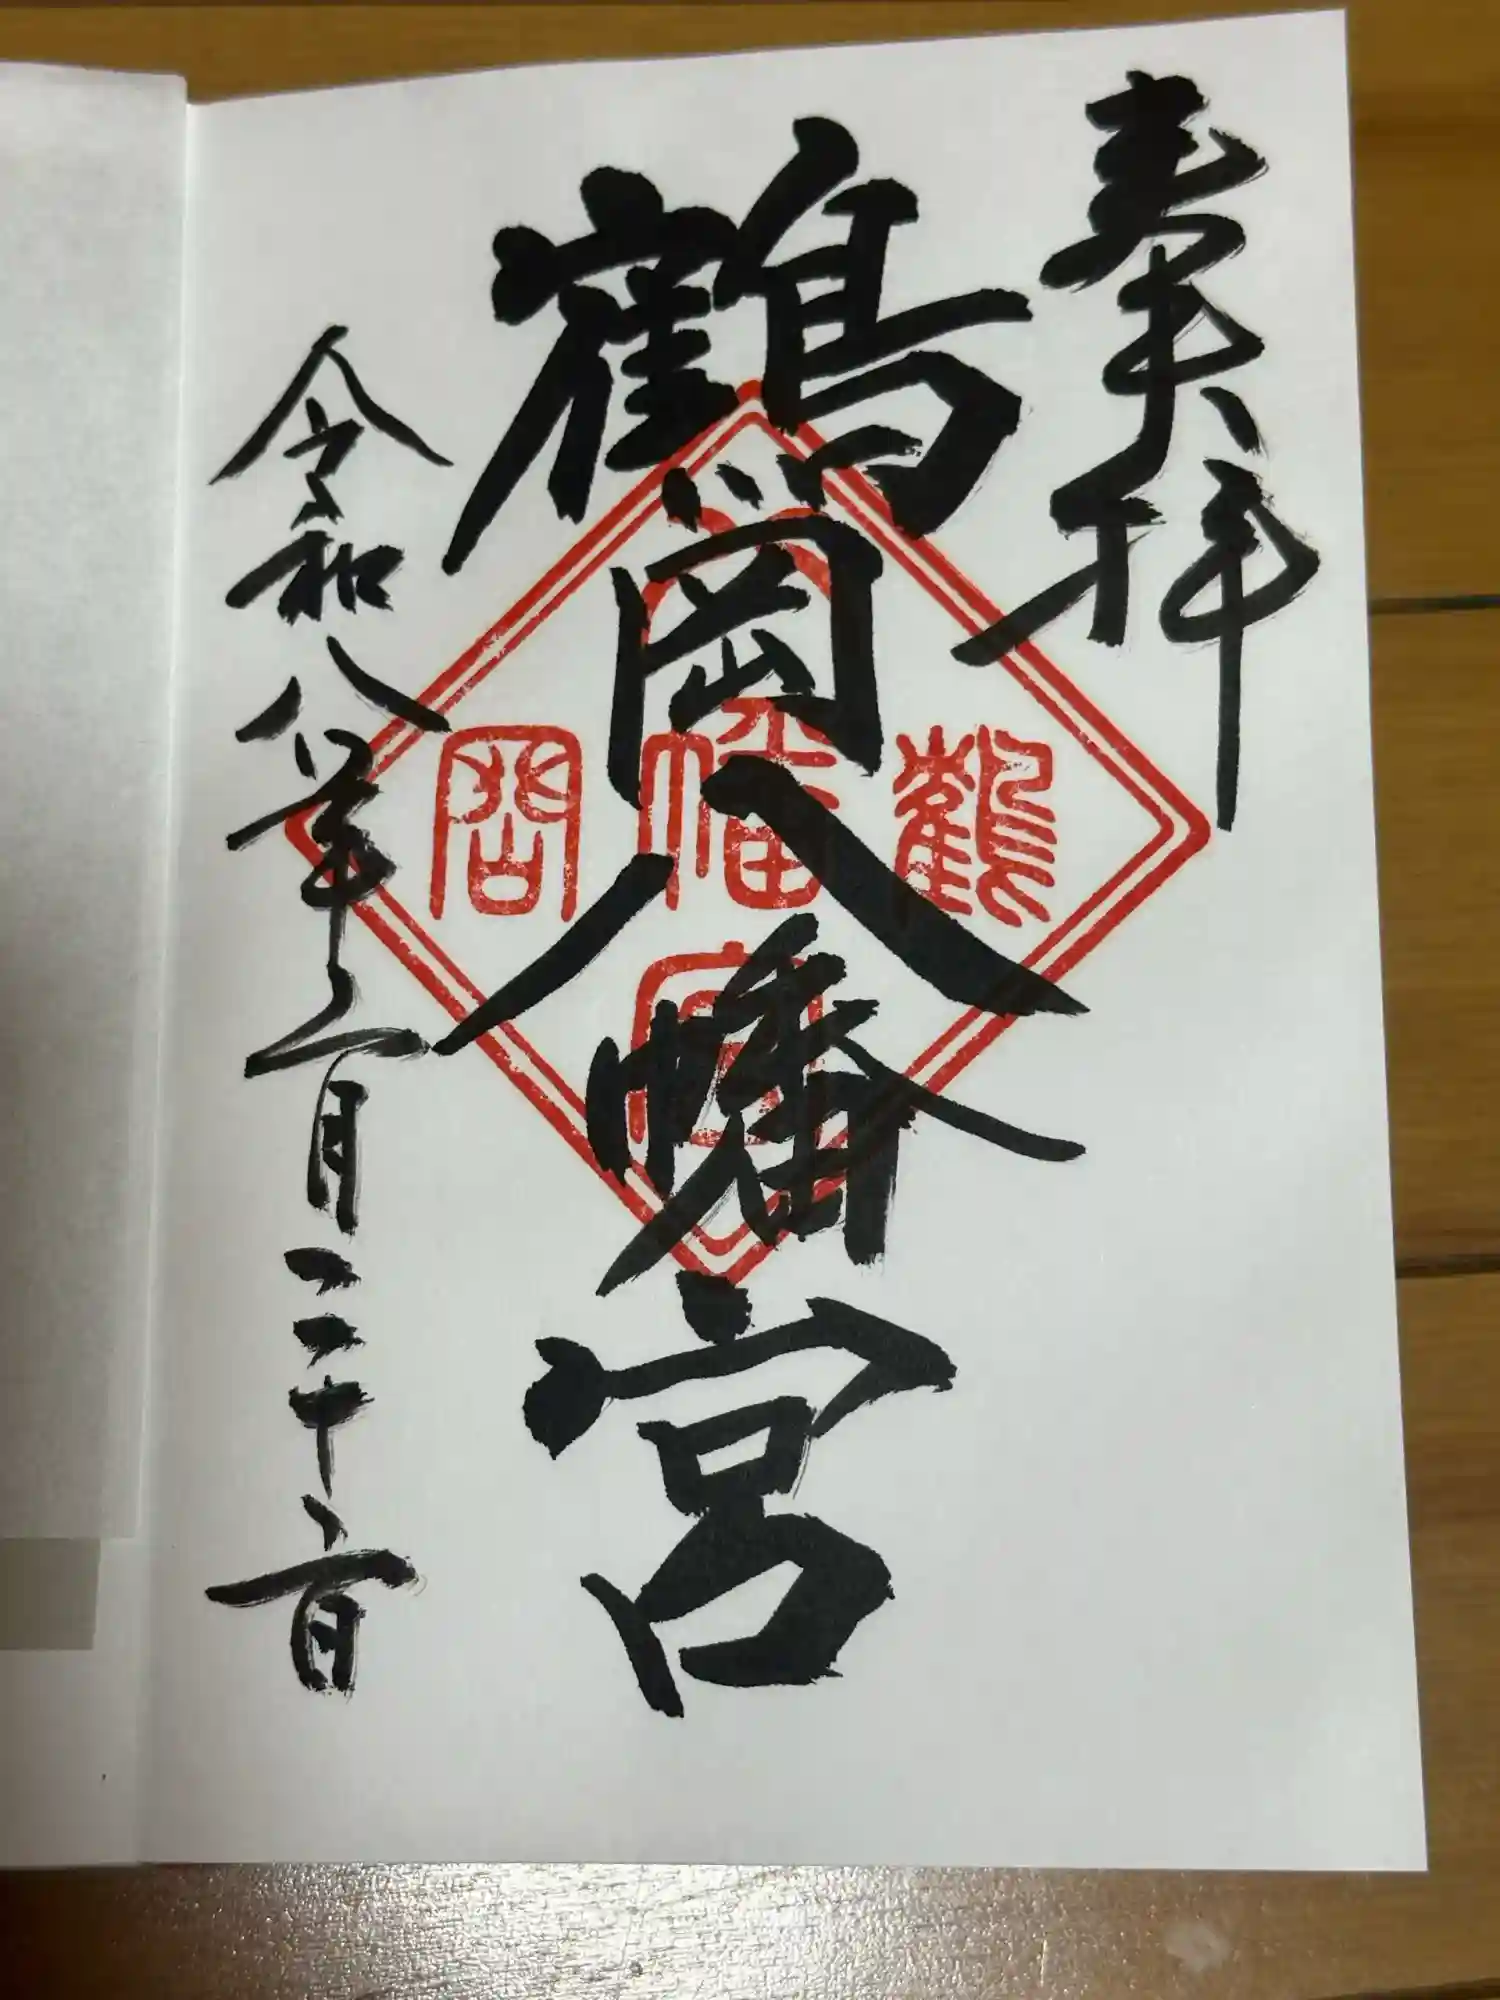 奉拝
鶴岡八幡宮
令和八年二月二十六日
鶴岡八幡宮